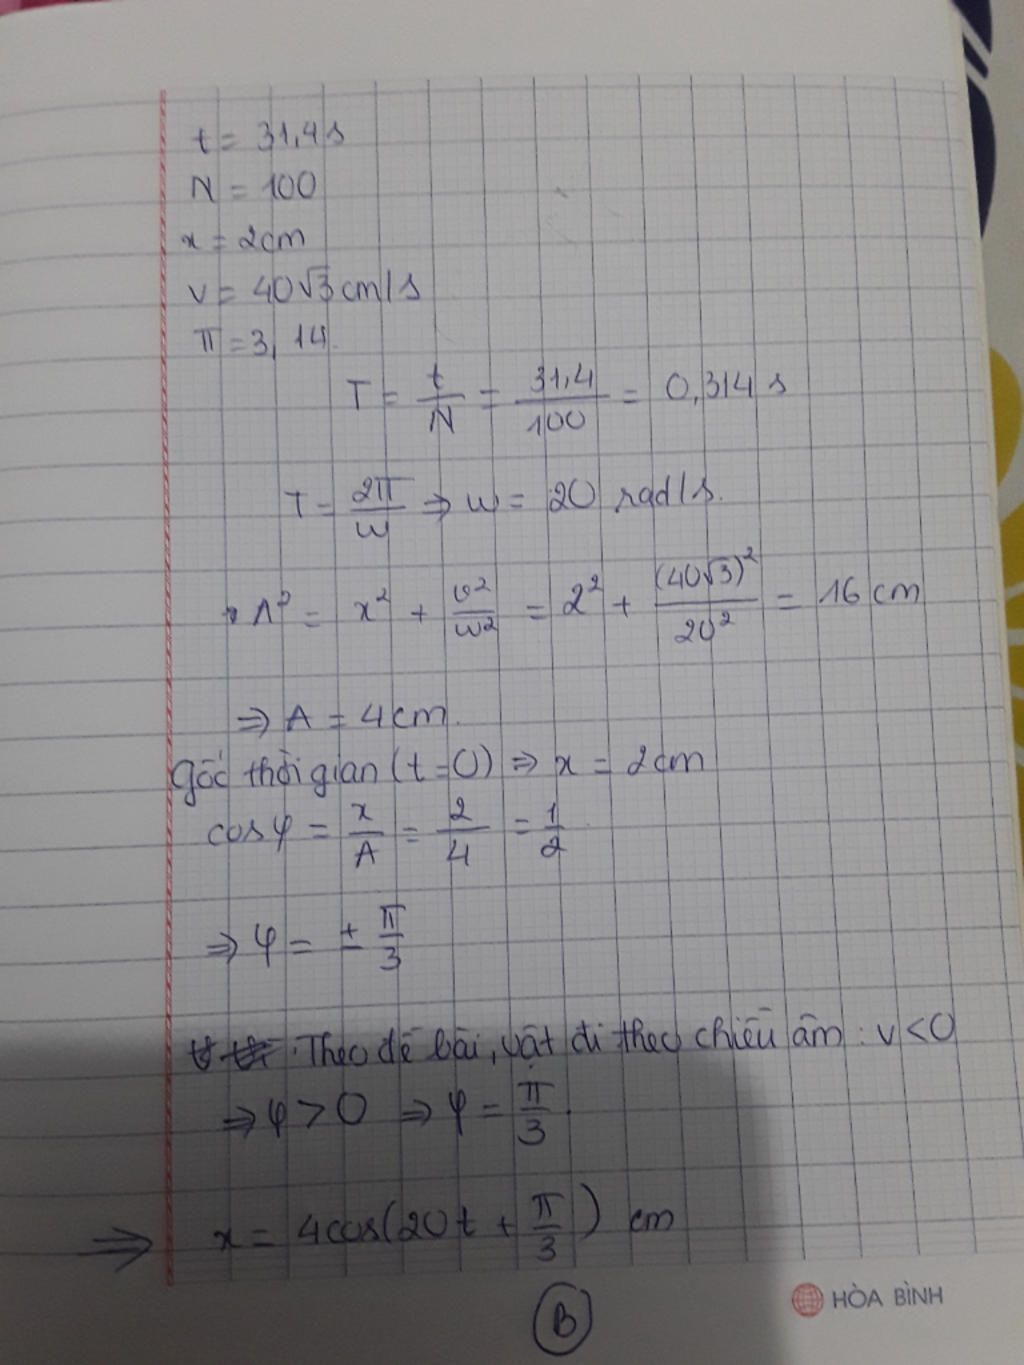 t = 31,4 s
N = 100
x = 2cm
v = 40√3 cm/s
π = 3,14.
T = t/N = 31,4/100 = 0,314 s
T = 2π/ω ⇒ ω = 20 rad/s.
A² = x² + v²/ω² = 2² + (40√3)²/20² = 16 cm
⇒ A = 4cm.
Gốc thời gian (t=0) ⇒ x = 2cm
cosφ = x/A = 2/4 = 1/2
⇒ φ = ± π/3
Theo đề bài, vật đi theo chiều âm : v<0
⇒ φ > 0 ⇒ φ = π/3.
⇒ x = 4cos(20t + π/3) cm
B
HÒA BÌNH